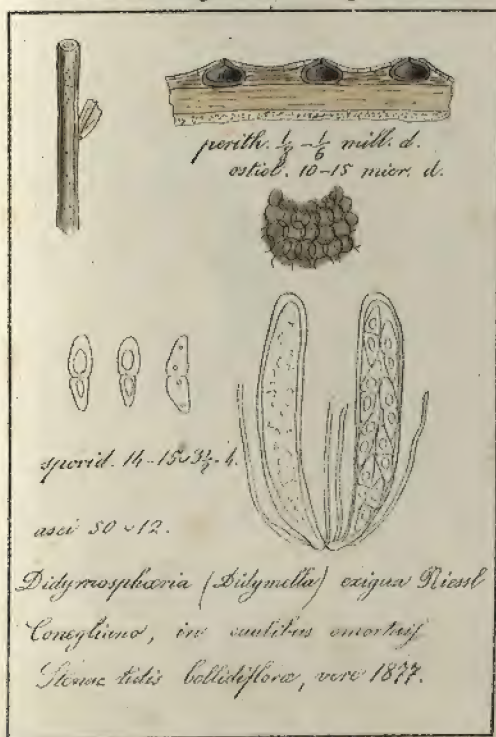 perith. 1/8 - 1/6 mill. d.
ostiol. 10-15 micr. d.
sporid. 14-15 ᴗ 3½-4.
asci 50 ᴗ 12.
Didymosphæria (Didymella) exigua Niessl
Conegliano, in caulibus emortuis
Stenactidis bellidifloræ, vere 1877.